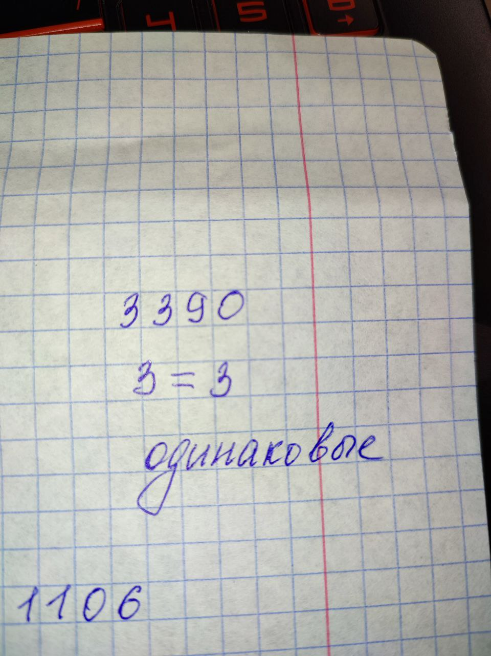 Ч 5
3390
3 = 3
одинаковые
1106